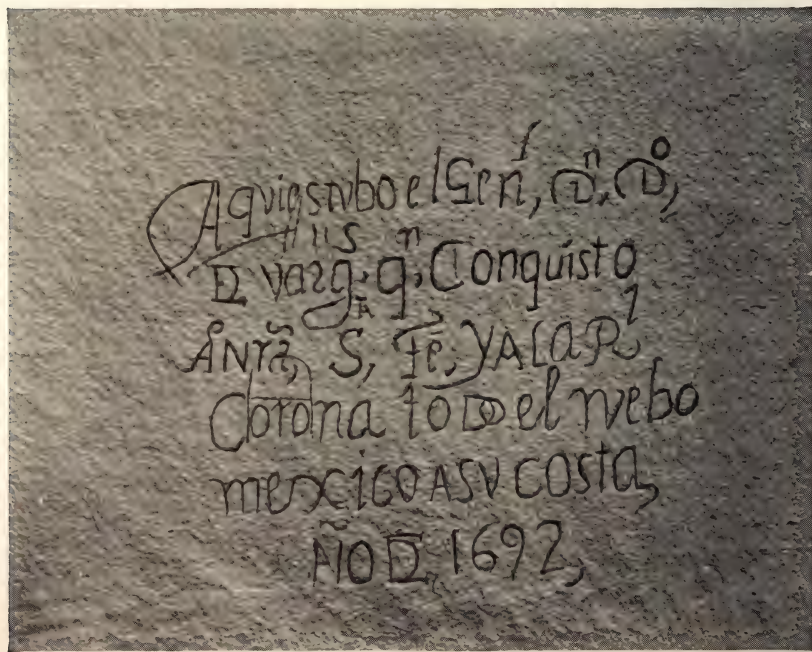 Aqui estvbo el Genˡ, Dⁿ, Dº,
DE vargas, qⁿ, Conquisto
A Nrã, S, Fe, Y A La Rˡ
Corona toDo el nvebo
mexico ASV costa,
AÑO DE 1692,